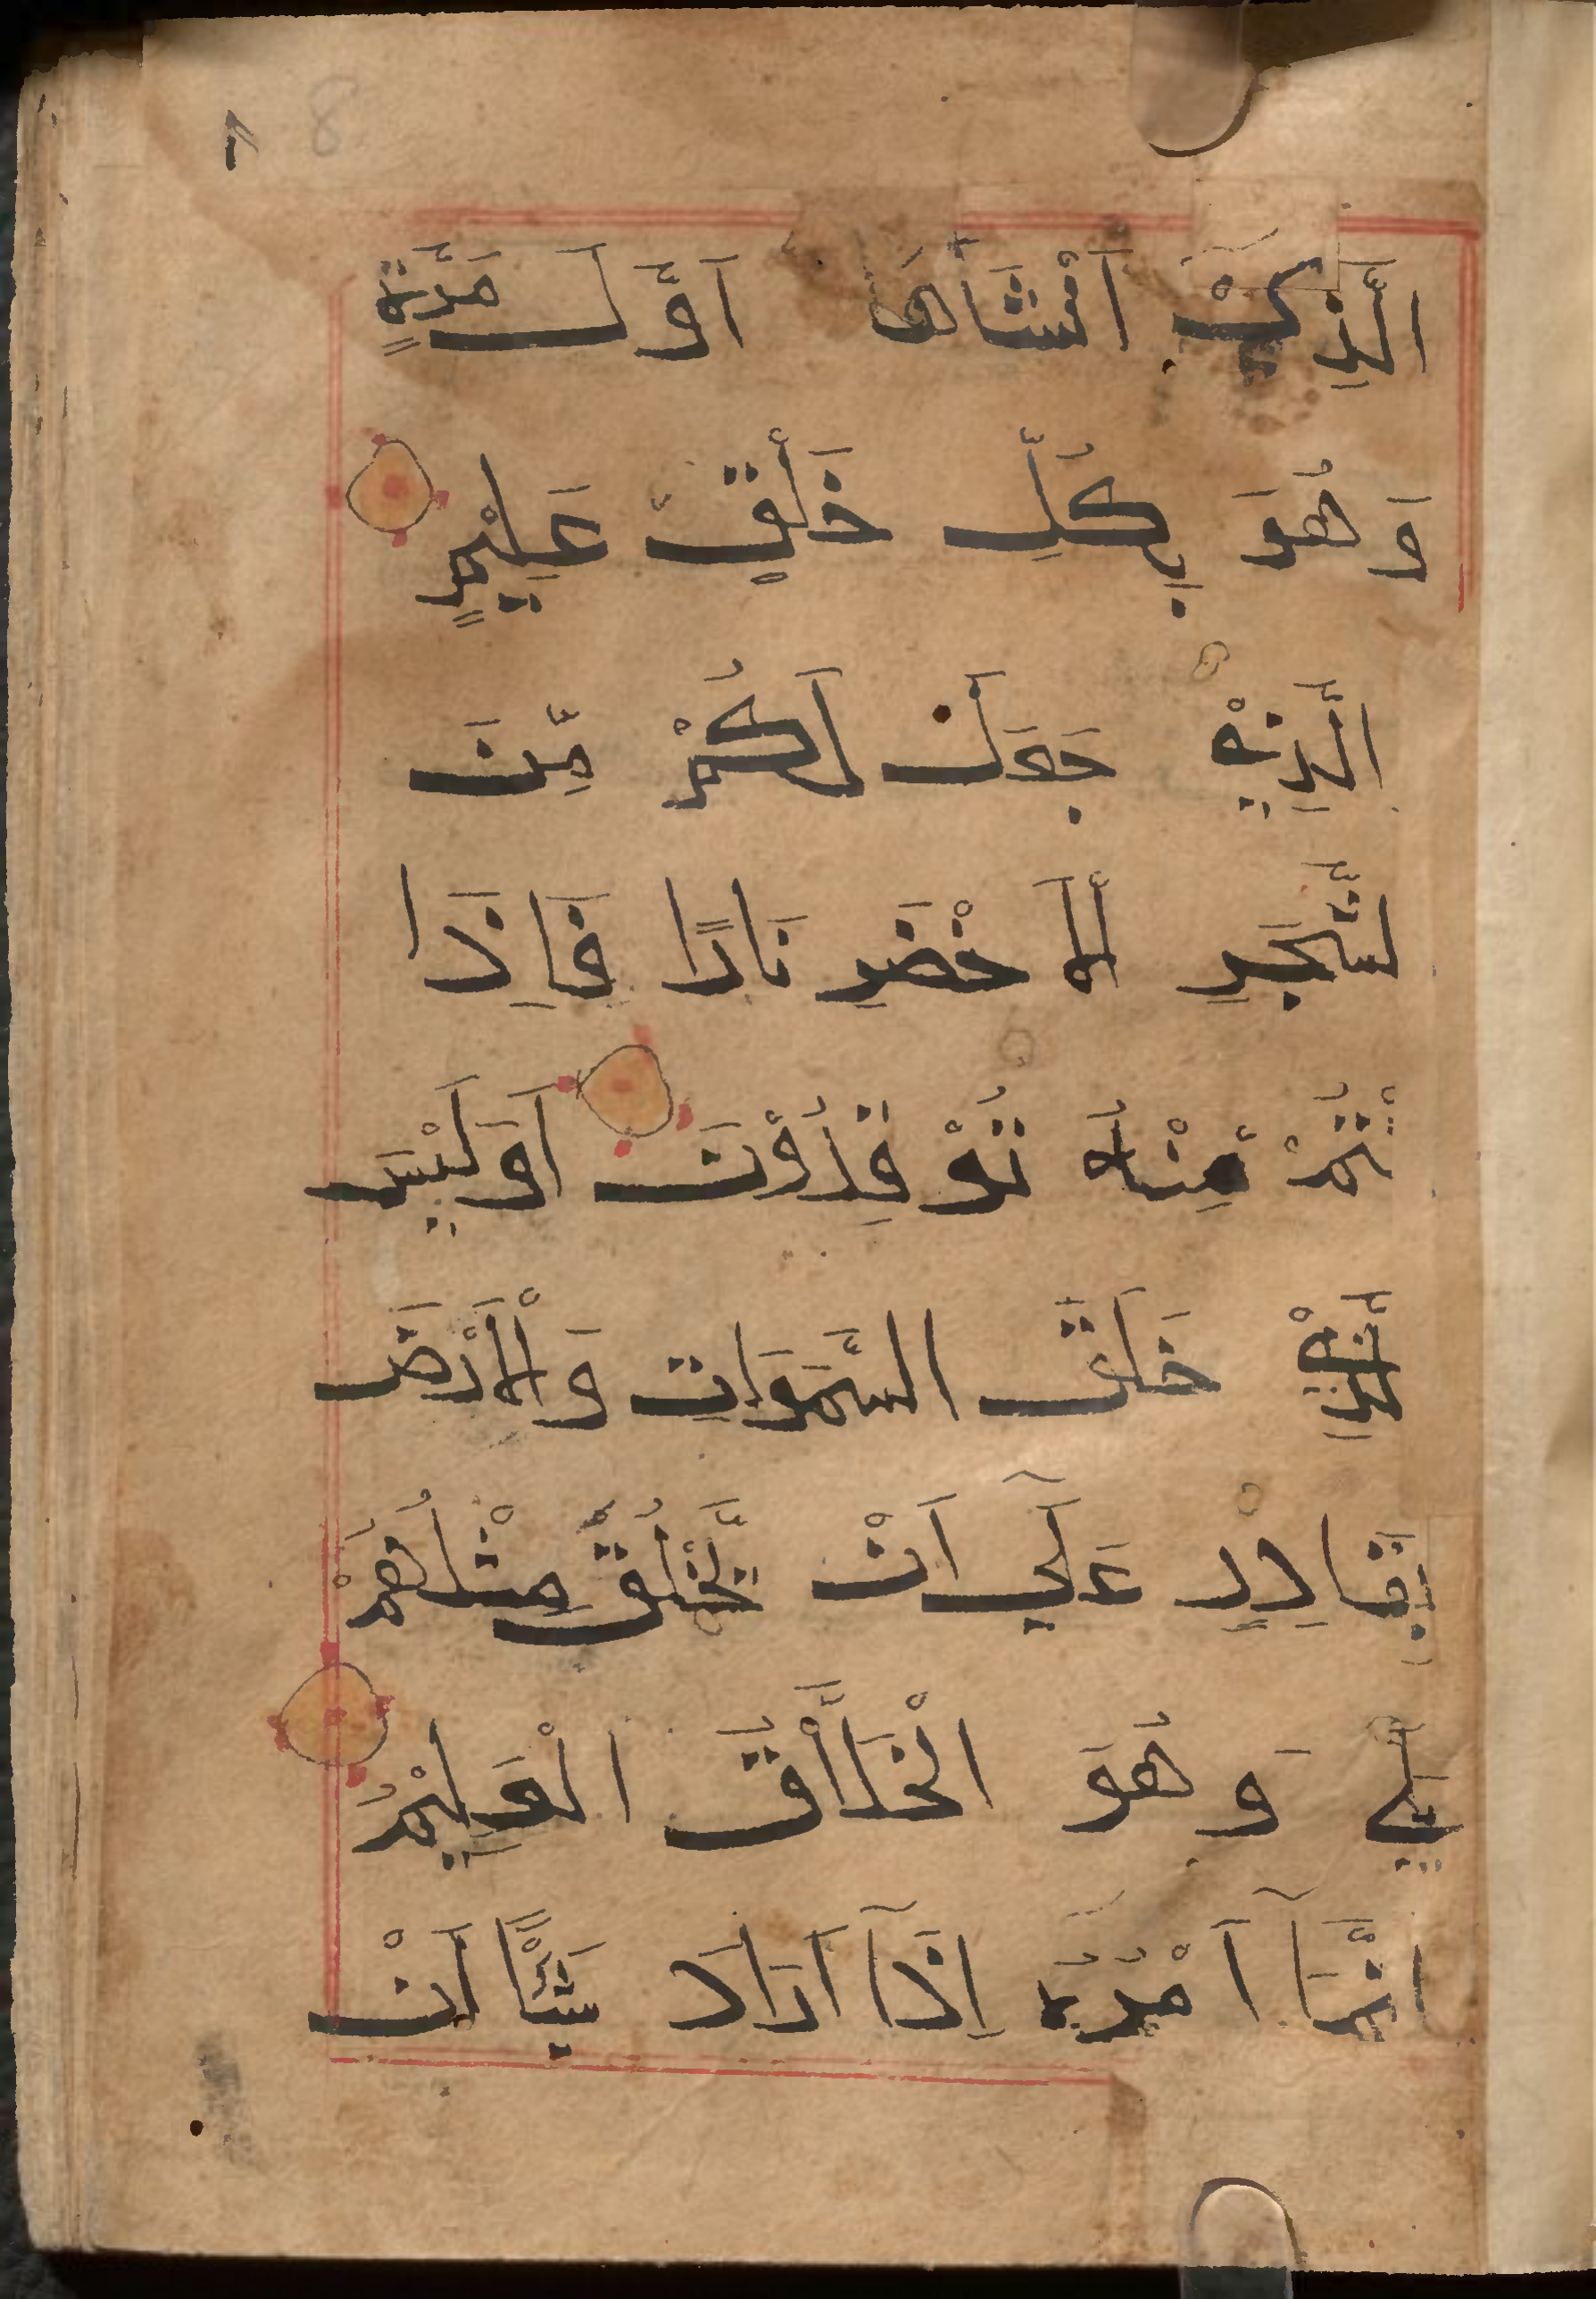 8
الَّذِيْ اَنْشَاَهَا اَوَّلَ مَرَّةٍ
وَهُوَ بِكُلِّ خَلْقٍ عَلِيْمٍ
الَّذِيْ جَعَلَ لَكُمْ مِّنَ
الشَّجَرِ الْاَخْضَرِ نَارًا فَاِذَا
اَنْتُمْ مِنْهُ تُوْقِدُوْنَ اَوَلَيْسَ
الَّذِيْ خَلَقَ السَّمَوَاتِ وَالْاَرْضَ
بِقَادِرٍ عَلَى اَنْ يَّخْلُقَ مِثْلَهُمْ
بَلٰي وَهُوَ الْخَلَّاقُ الْعَلِيْمُ
اِنَّمَآ اَمْرُهُ اِذَآ اَرَادَ شَيْئًا اَنْ